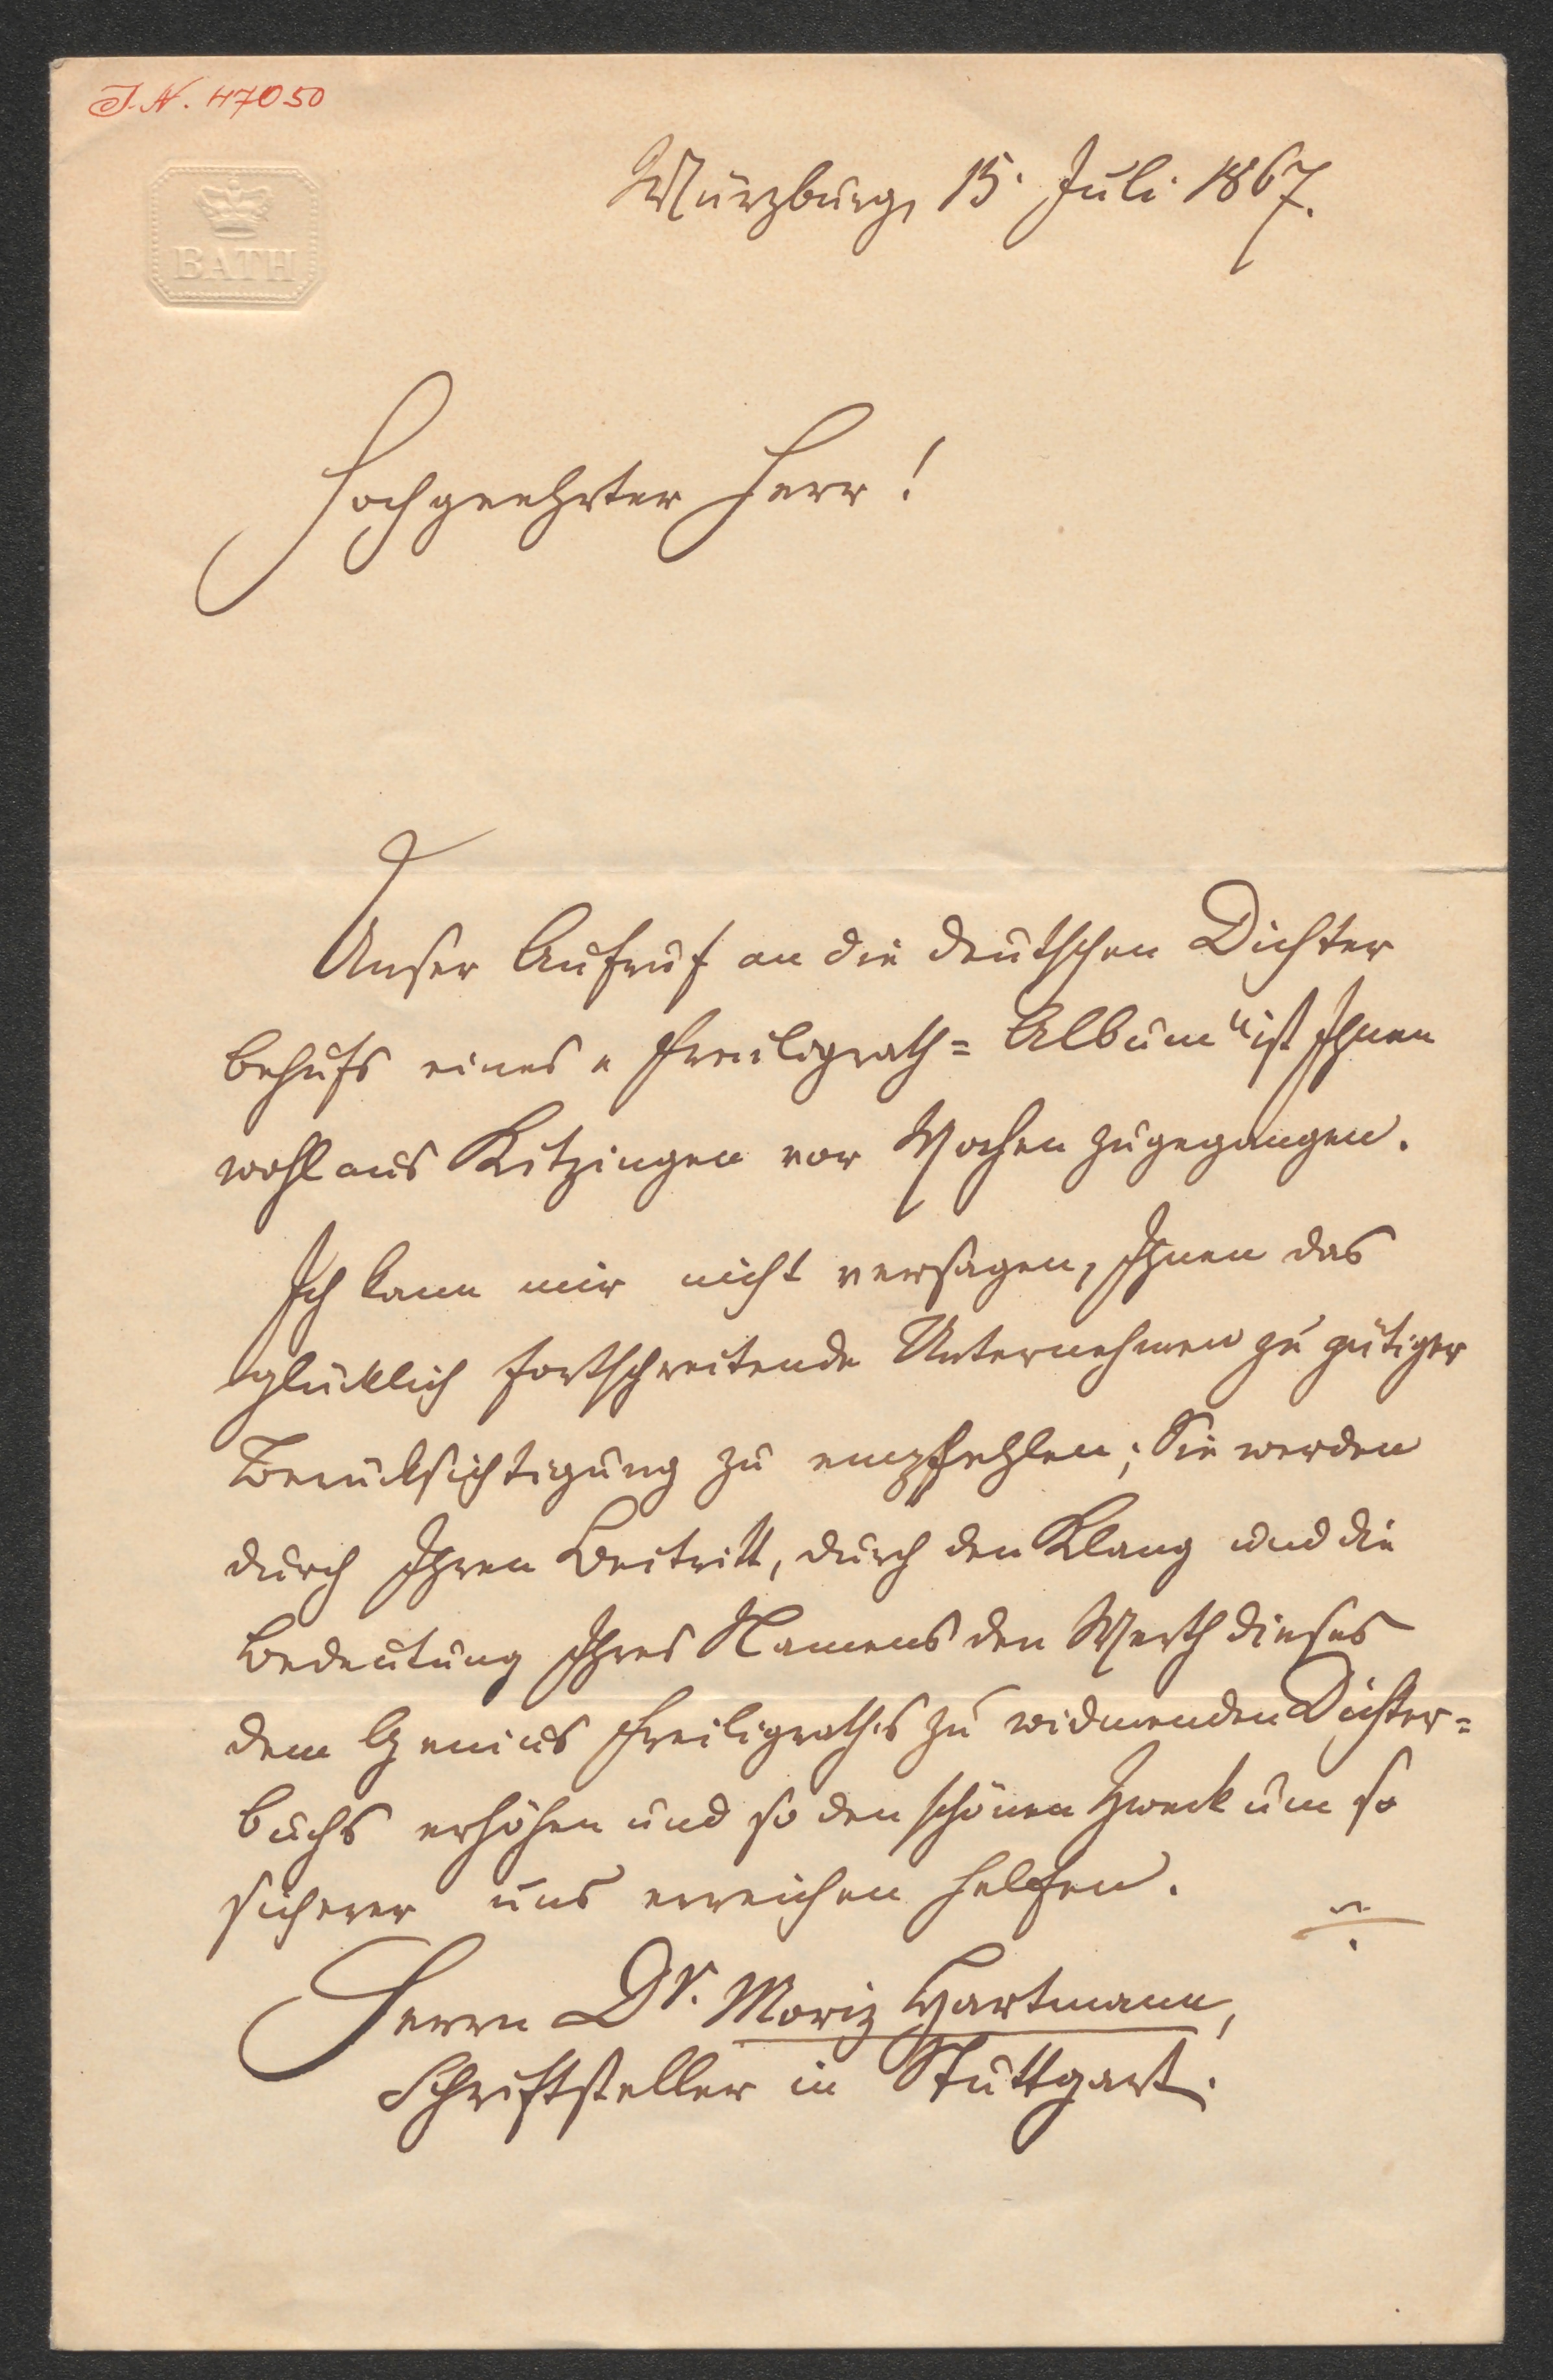 J. N. 47050
BATH
Würzburg, 15. Juli 1867.
Hochgeehrter Herr!
Unser Aufruf an die deutschen Dichter
behufs eines „Freiligrath= Album“ ist Ihnen
wohl aus Kitzingen vor Wochen zugegangen.
Ich kann mir nicht versagen, Ihnen das
glücklich fortschreitende Unternehmen zu gütiger
Berücksichtigung zu empfehlen; Sie werden
durch Ihren Beitritt, durch den Klang und die
Bedeutung Ihres Namens den Werth dieses
dem Genius Freiligrath's zu widmenden Dichter=
buchs erhöhen und so den schönen Zweck um so
sicherer uns erreichen helfen.
Herrn Dr. Moriz Hartmann,
Schriftsteller in Stuttgart.